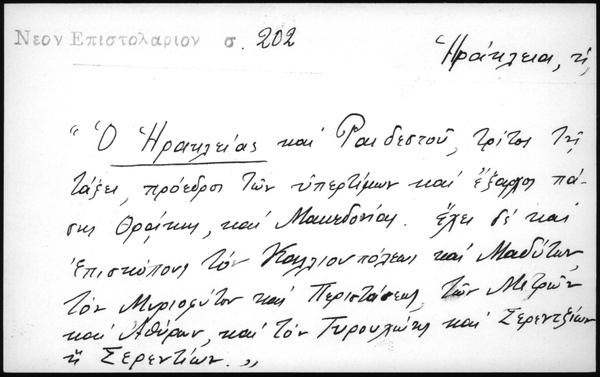 Νεον Επιστολαριον σ. 202
Ἡράκλεια, ἡ,
"Ὁ Ἡρακλείας καί Ραιδεστοῦ, τρίτος τῇ
τάξει, πρόεδρος τῶν ὑπερτίμων καί ἔξαρχος πά-
σης Θράκης, καί Μακεδονίας. ἔχει δέ καί
ἐπισκόπους τόν Καλλιουπόλεως καί Μαδύτων,
τόν Μυριοφύτου καί Περιστάσεως, τῶν Μετρῶν
καί Ἀθύρων, καί τόν Τυρουλόης καί Σερεντζίων
ἤ Σερεντίων. „